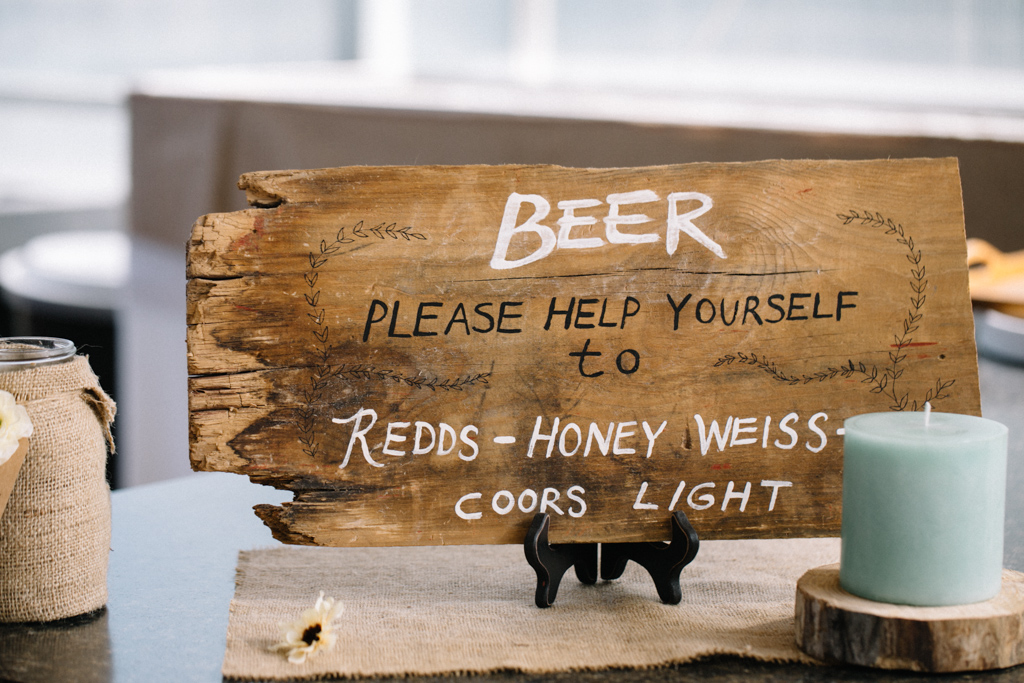 BEER
PLEASE HELP YOURSELF
to
REDDS - HONEY WEISS -
COORS LIGHT